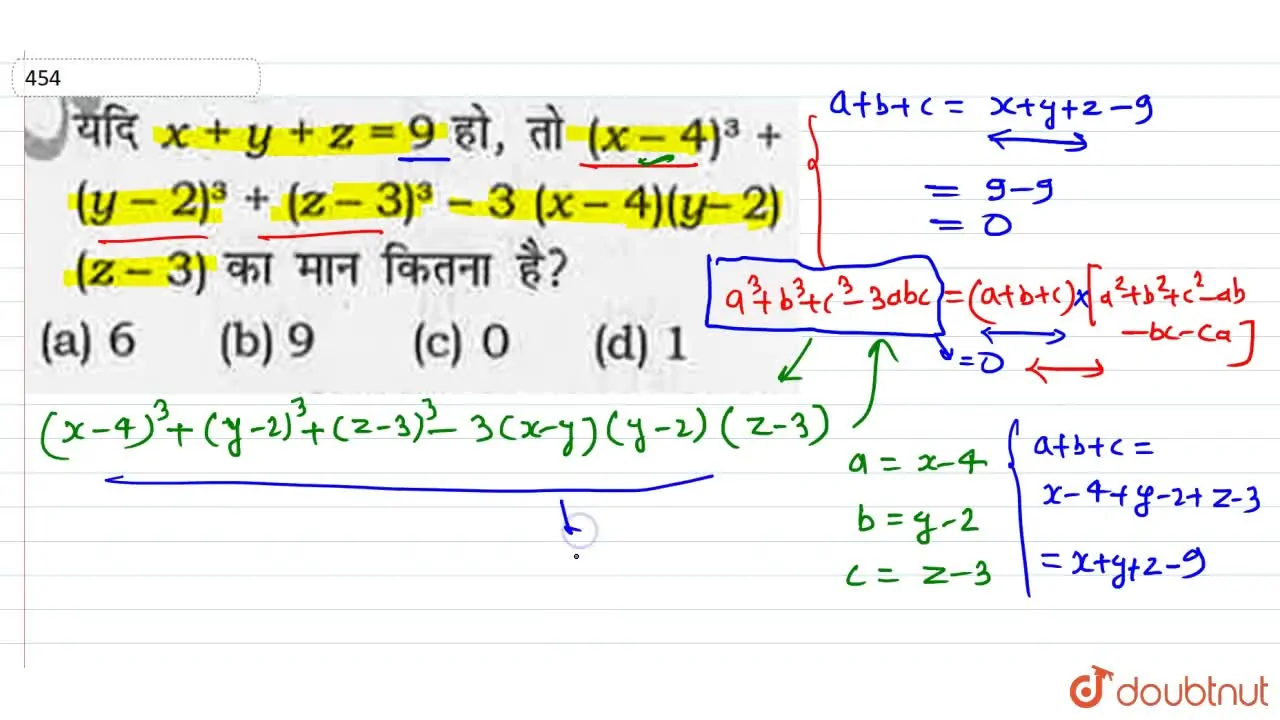 454
यदि x + y + z = 9 हो, तो (x – 4)³ +
(y – 2)³ + (z – 3)³ – 3 (x – 4)(y – 2)
(z – 3) का मान कितना है?
(a) 6 (b) 9 (c) 0 (d) 1
a+b+c = x+y+z-9
= 9-9
= 0
a³+b³+c³-3abc = (a+b+c)x[a²+b²+c²-ab
-bc-ca]
=0
(x-4)³+(y-2)³+(z-3)³-3(x-y)(y-2)(z-3)
a = x-4
b = y-2
c = z-3
a+b+c=
x-4+y-2+z-3
=x+y+z-9
doubtnut